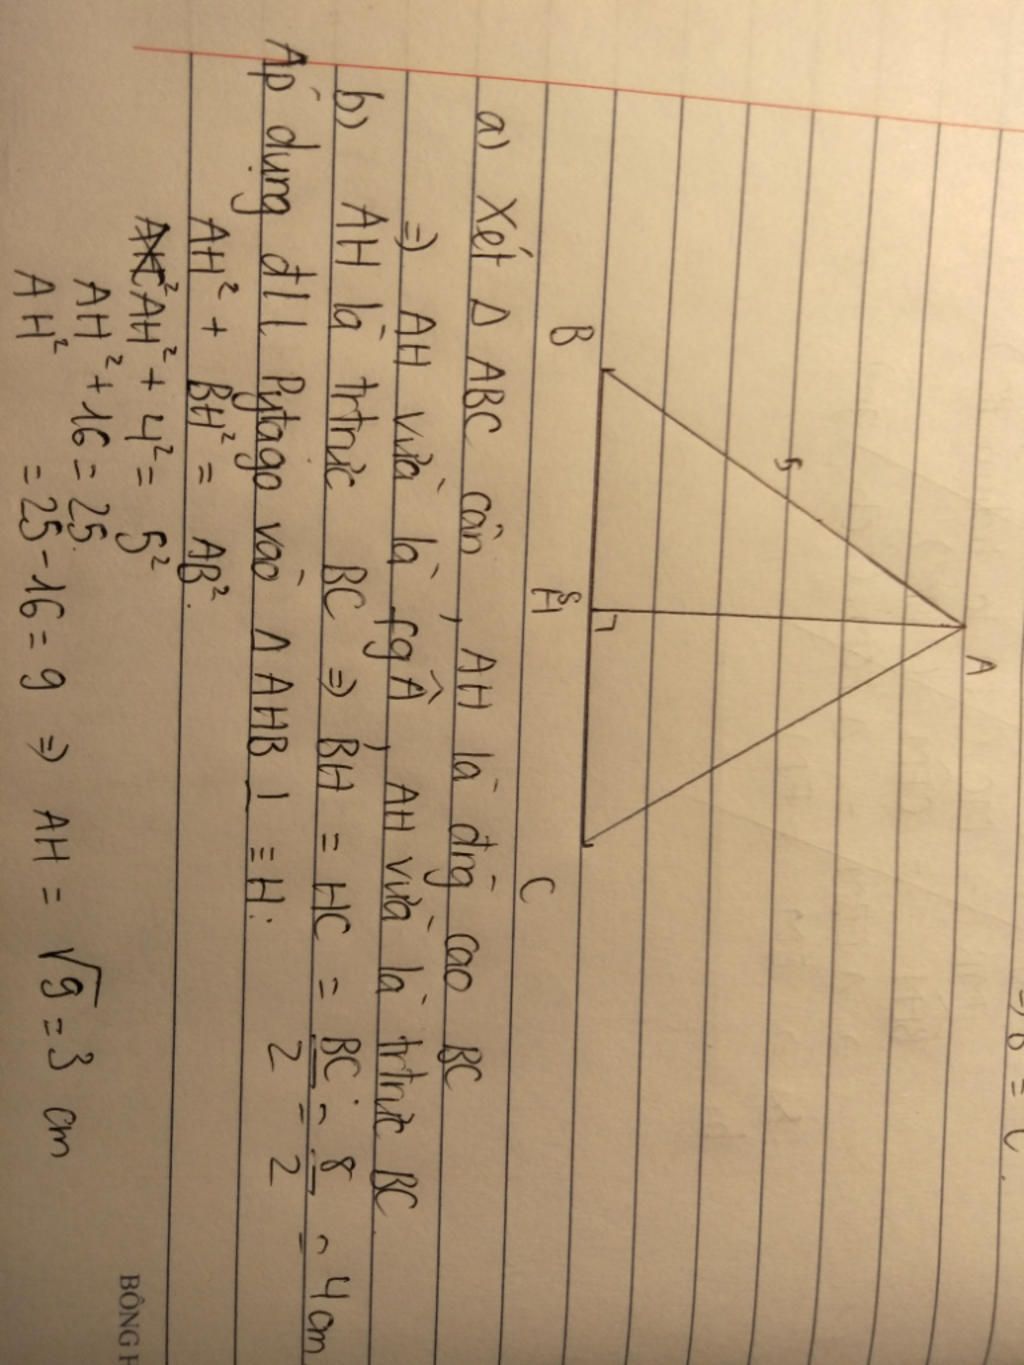 A
5
B
8
H
C
a) Xét Δ ABC cân, AH là đrg cao BC
=) AH vừa là fg Â, AH vừa là trtrực BC.
b) AH là trtrực BC => BH = HC = BC/2 = 8/2 = 4 cm
Áp dụng đl Pytago vào Δ AHB ⊥ = H:
AH² + BH² = AB².
AH² + 4² = 5²
AH² + 16 = 25.
AH² = 25 - 16 = 9 => AH = √9 = 3 cm